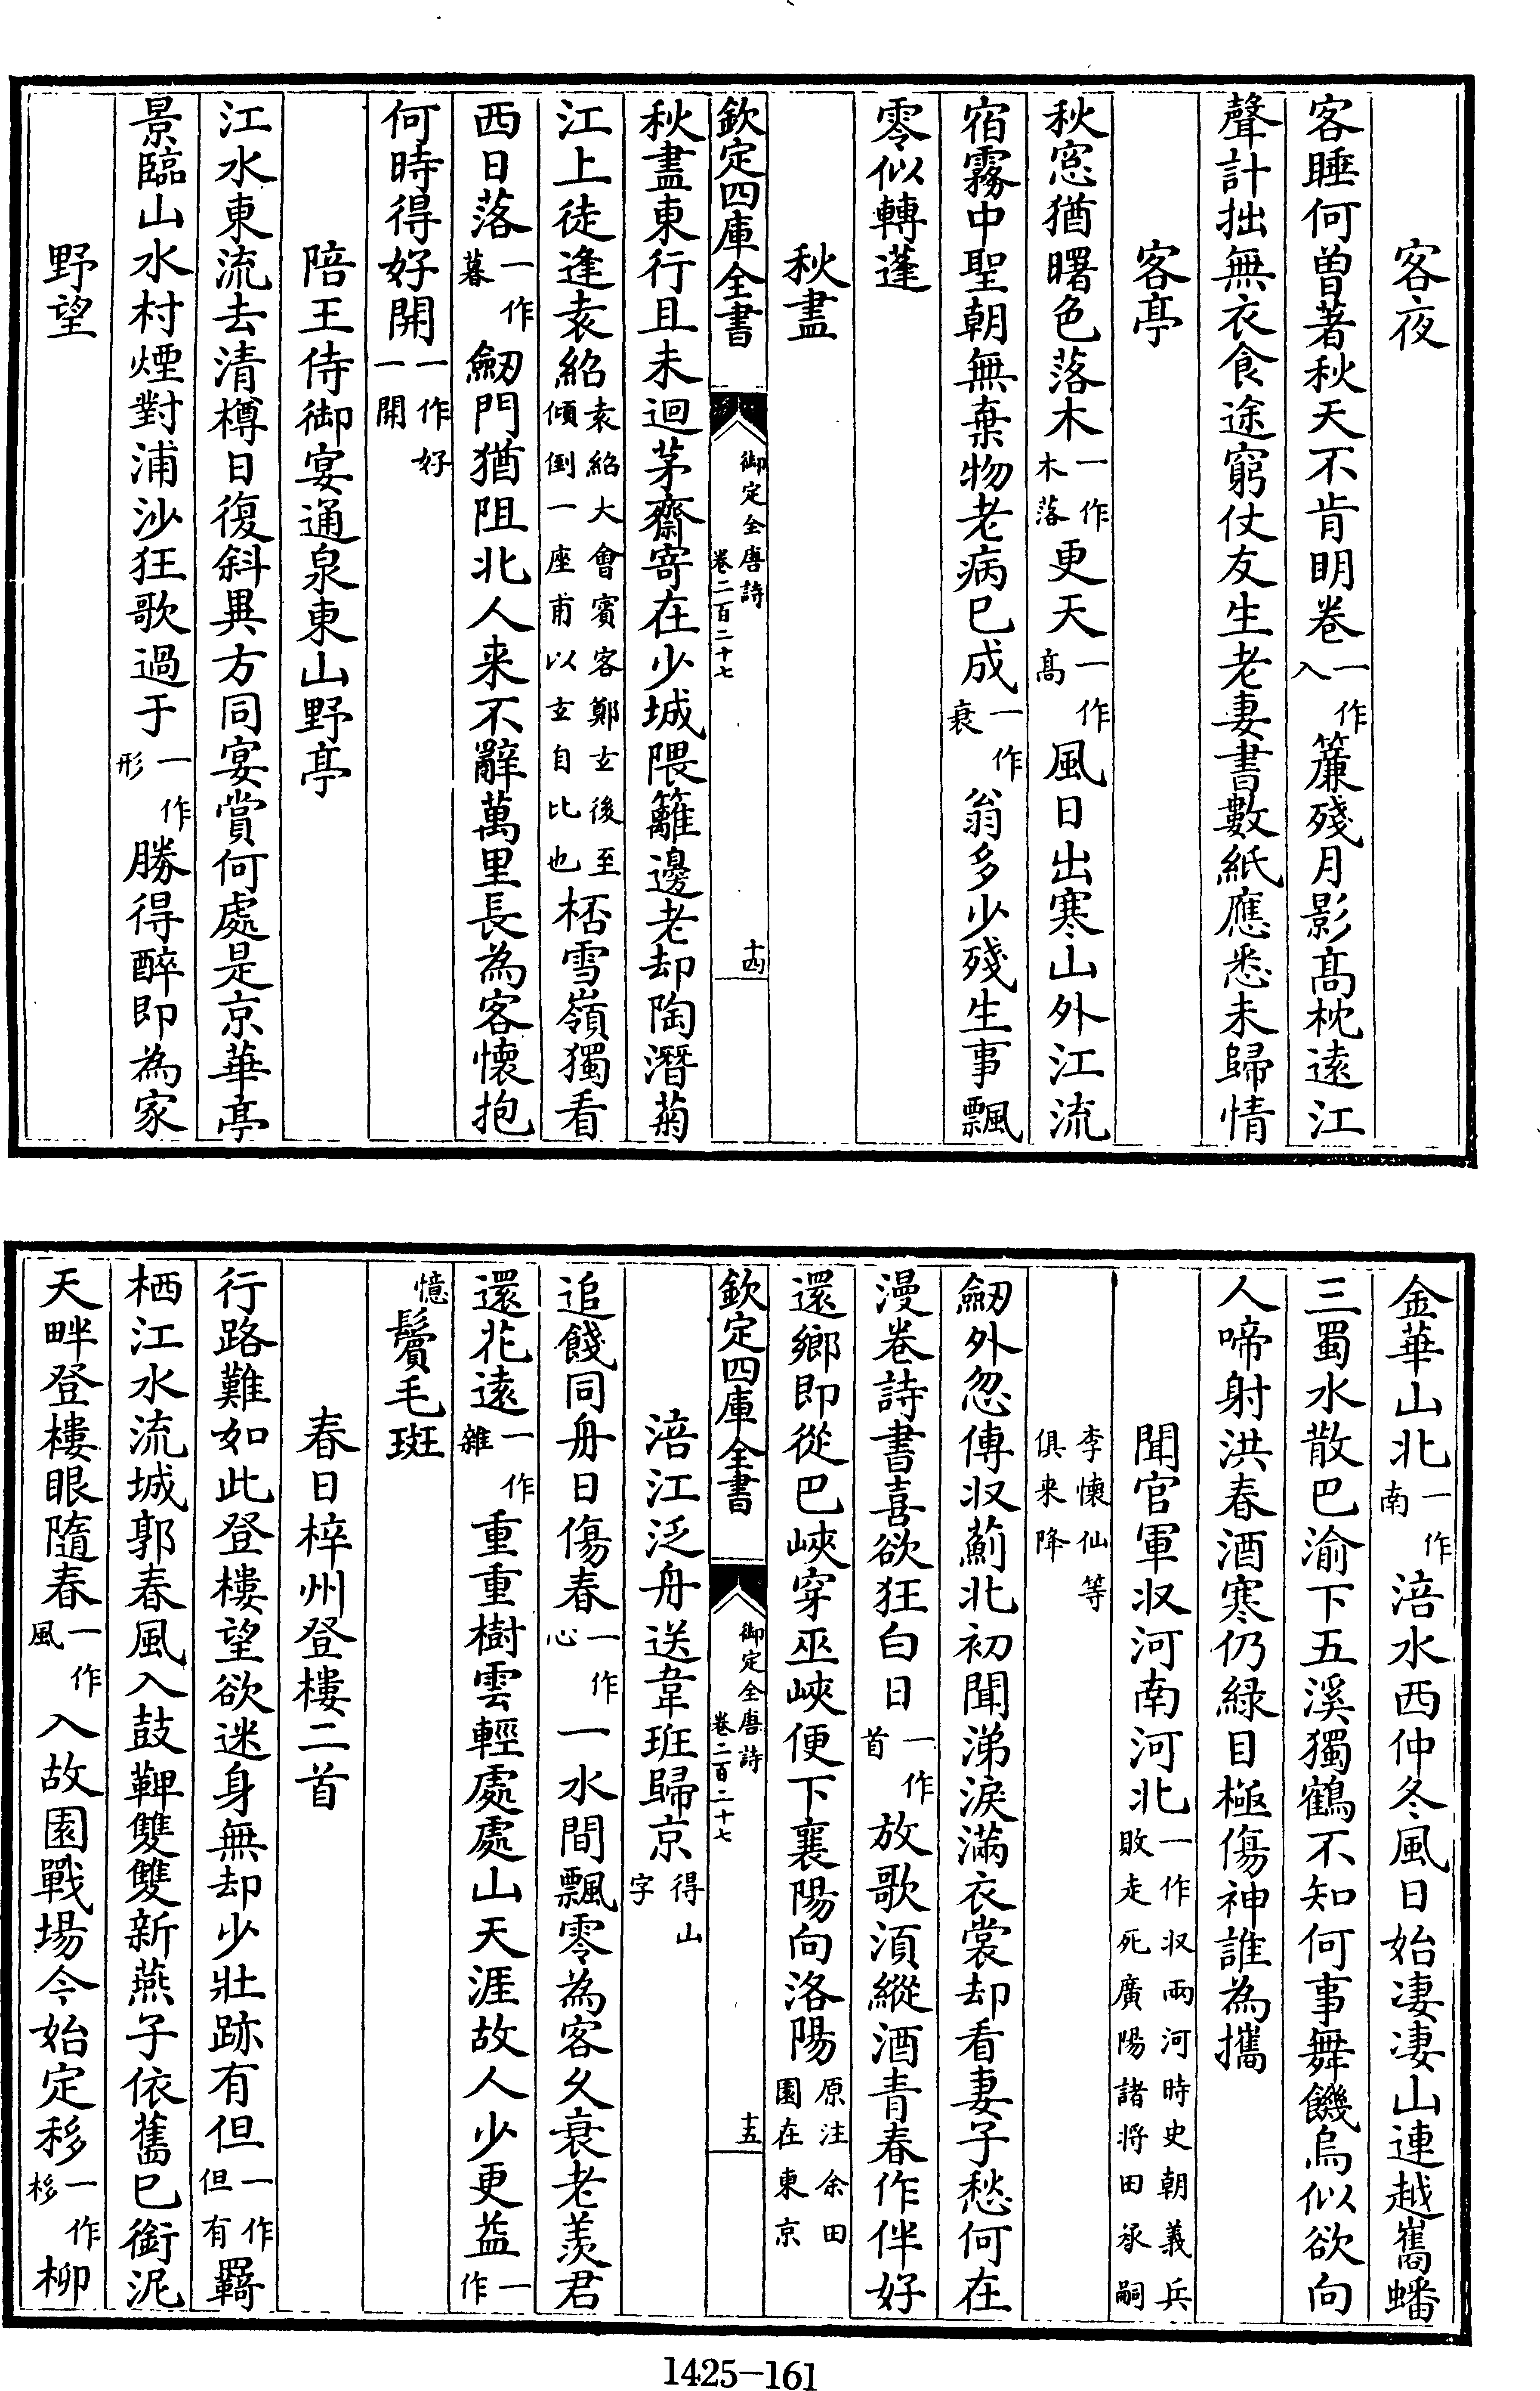 客夜
客睡何曾著秋天不肯明卷一作入簾殘月影髙枕逺江
聲計拙無衣食途窮仗友生老妻書數紙應悉未歸情
客亭
秋窓猶曙色落木一作木落更天一作髙風日出寒山外江流
宿霧中聖朝無棄物老病已成一作衰翁多少殘生事飄
零似轉蓬
秋盡
欽定四庫全書
御定全唐詩
卷二百二十七
十四
秋盡東行且未迴茅齋寄在少城隈籬邊老却陶潛菊
江上徒逢袁紹袁紹大會賓客鄭玄後至傾倒一座甫以玄自比也桮雪嶺獨看
西日落一作暮劔門猶阻北人来不辭萬里長為客懷抱
何時得好開一作好一開
陪王侍御宴通泉東山野亭
江水東流去清樽日復斜異方同宴賞何處是京華亭
景臨山水村煙對浦沙狂歌過于一作形勝得醉即為家
野望
金華山北一作南涪水西仲冬風日始凄凄山連越嶲蟠
三蜀水散巴渝下五溪獨鶴不知何事舞饑烏似欲向
人啼射洪春酒寒仍緑目極傷神誰為攜
聞官軍收河南河北一作收兩河時史朝義兵敗走死廣陽諸將田承嗣
李懷仙等俱来降
劔外忽傳收薊北初聞涕淚滿衣裳却看妻子愁何在
漫卷詩書喜欲狂白日一作首放歌湏縱酒青春作伴好
還鄉即從巴峽穿巫峽便下襄陽向洛陽原注余田園在東京
欽定四庫全書
御定全唐詩
卷二百二十七
十五
涪江泛舟送韋班歸京得山字
追餞同舟日傷春一作心一水間飄零為客久衰老羨君
還花逺一作雜重重樹雲輕處處山天涯故人少更益一作
憶鬢毛斑
春日梓州登樓二首
行路難如此登樓望欲迷身無却少壯跡有但一作但有羇
栖江水流城郭春風入鼓鞞雙雙新燕子依舊已銜泥
天畔登樓眼隨春一作風入故園戰場今始定移一作栘柳
1425-161